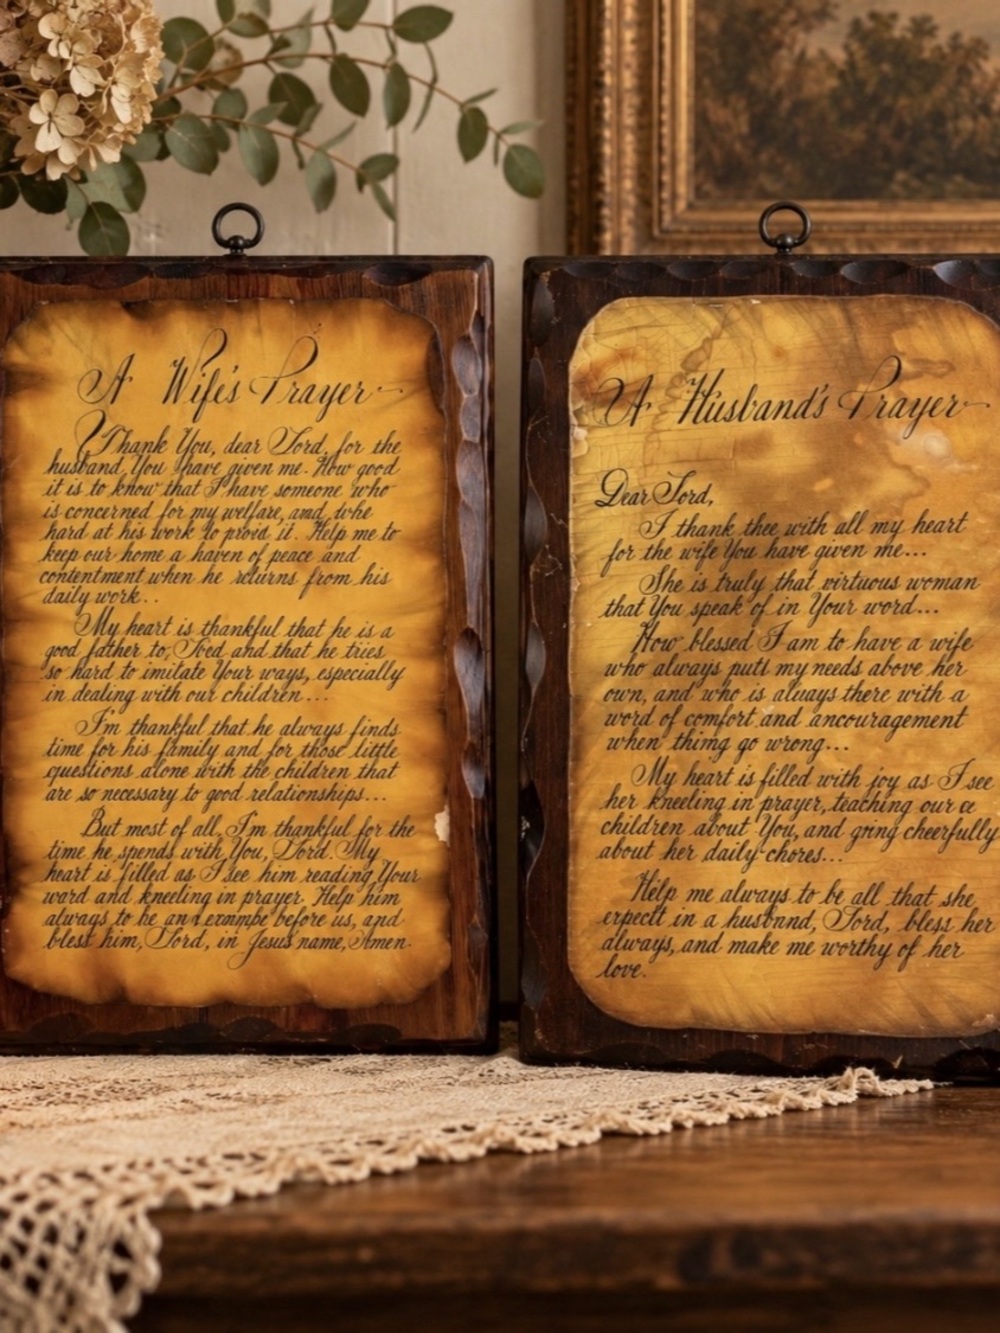 A Wife's Prayer
Thank You, dear Lord, for the
husband You have given me. How good
it is to know that I have someone who
is concerned for my welfare, and whe
hard at his work to provid it. Help me to
keep our home a haven of peace and
contentment when he returns from his
daily work..
My heart is thankful that he is a
good father to, and that he tries
so hard to imitate Your ways, especially
in dealing with our children...
I'm thankful that he always finds
time for his family and for those little
questions alone with the children that
are so necessary to good relationships...
But most of all, I'm thankful for the
time he spends with You, Lord. My
heart is filled as I see him reading Your
word and kneeling in prayer. Help him
always to be an exampbe before us, and
bless him, Lord, in Jesus name, Amen.
A Husband's Prayer
Dear Lord,
I thank thee with all my heart
for the wife You have given me...
She is truly that virtuous woman
that You speak of in Your word...
How blessed I am to have a wife
who always putt my needs above her
own, and who is always there with a
word of comfort and ancouragement
when thimg go wrong...
My heart is filled with joy as I see
her kneeling in prayer, teaching our
children about You, and going cheerfully
about her daily chores...
Help me always to be all that she
expectt in a husbnnd, Lord, bless her
always, and make me worthy of her
love.